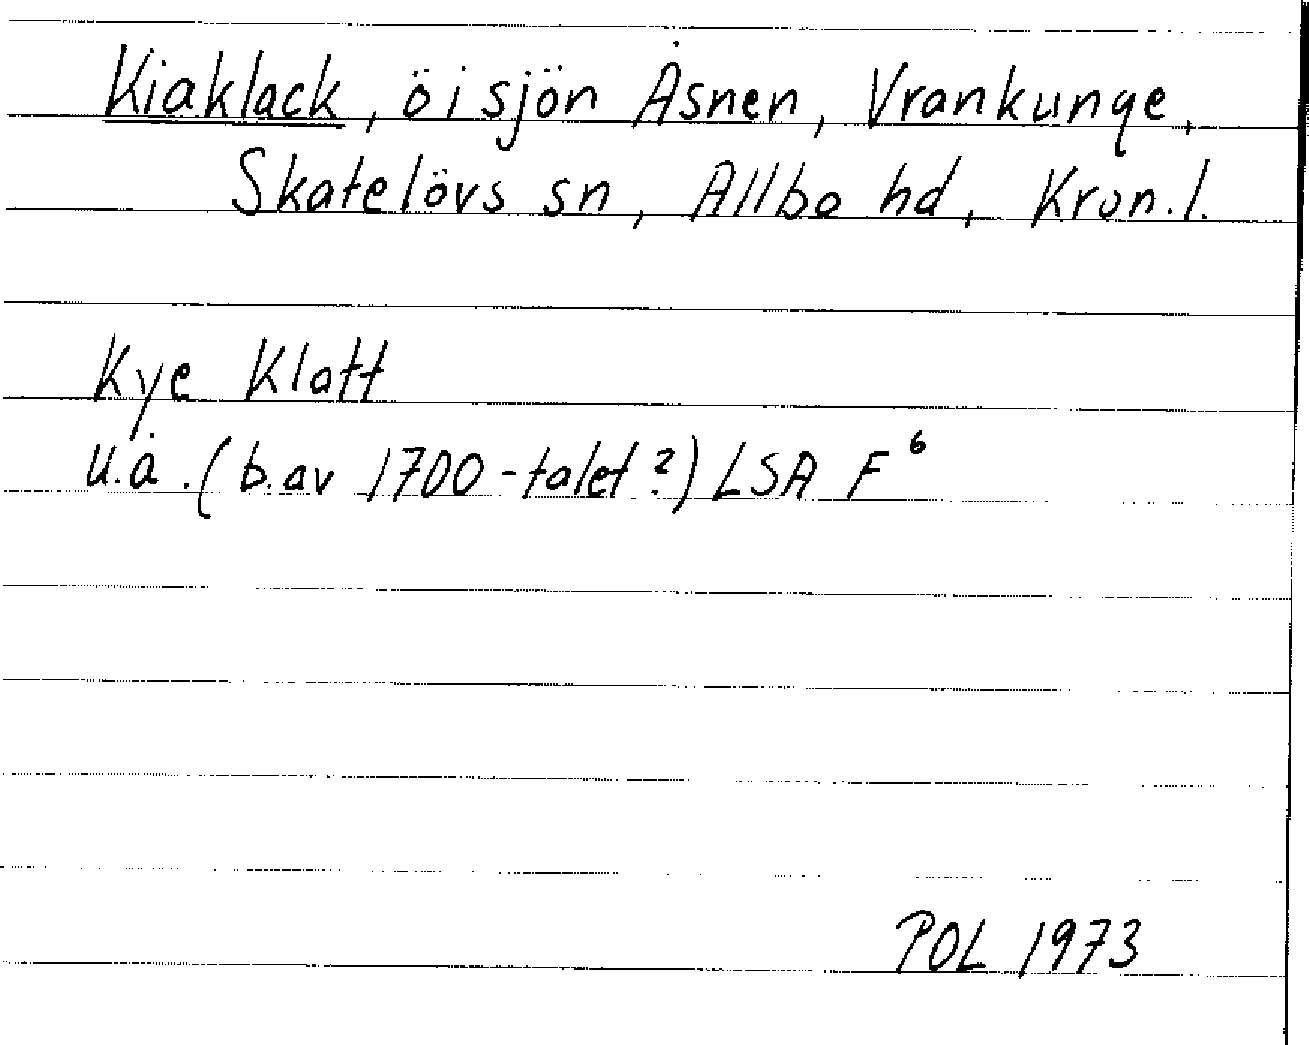 Kiaklack, ö i sjön Åsnen, Vrankunge,
Skatelövs sn, Allbo hd, Kron.l.
Kye Klatt
u.å. (b.av 1700-talet?) LSA F⁶
POL 1973